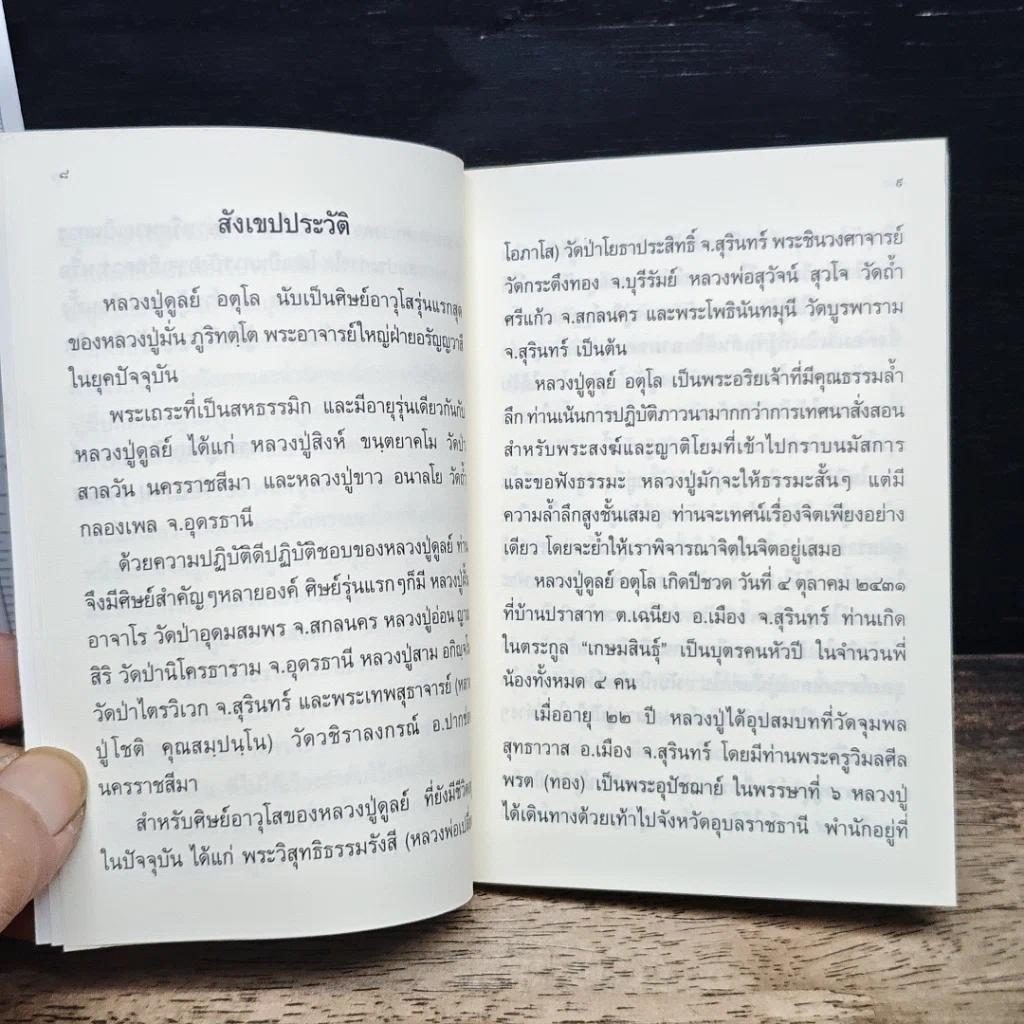 ๘
สังเขปประวัติ
หลวงปู่ดูลย์ อตุโล นับเป็นศิษย์อาวุโสรุ่นแรกสุด
ของหลวงปู่มั่น ภูริทตฺโต พระอาจารย์ใหญ่ฝ่ายอรัญญวาสี
ในยุคปัจจุบัน
พระเถระที่เป็นสหธรรมิก และมีอายุรุ่นเดียวกันกับ
หลวงปู่ดูลย์ ได้แก่ หลวงปู่สิงห์ ขนฺตยาคโม วัดป่า
สาลวัน นครราชสีมา และหลวงปู่ขาว อนาลโย วัดถ้ำ
กลองเพล จ.อุดรธานี
ด้วยความปฏิบัติดีปฏิบัติชอบของหลวงปู่ดูลย์ ท่าน
จึงมีศิษย์สำคัญๆหลายองค์ ศิษย์รุ่นแรกๆก็มี หลวงปู่ฝั้น
อาจาโร วัดป่าอุดมสมพร จ.สกลนคร หลวงปู่อ่อน
สิริ วัดป่านิโครธาราม จ.อุดรธานี หลวงปู่สาม อกิญฺจโน
วัดป่าไตรวิเวก จ.สุรินทร์ และพระเทพสุธาจารย์
ปู่โชติ คุณสมฺปนฺโน) วัดวชิราลงกรณ์ อ.ปากช่อง
นครราชสีมา
สำหรับศิษย์อาวุโสของหลวงปู่ดูลย์ ที่ยังมีชีวิตอยู่
ในปัจจุบัน ได้แก่ พระวิสุทธิธรรมรังสี (หลวงพ่อเปลี่ยน
๙
โอภาโส) วัดป่าโยธาประสิทธิ์ จ.สุรินทร์ พระชินวงศาจารย์
วัดกระดึงทอง จ.บุรีรัมย์ หลวงพ่อสุวัจน์ สุวโจ วัดถ้ำ
ศรีแก้ว จ.สกลนคร และพระโพธินันทมุนี วัดบูรพาราม
จ.สุรินทร์ เป็นต้น
หลวงปู่ดูลย์ อตุโล เป็นพระอริยเจ้าที่มีคุณธรรมล้ำ
ลึก ท่านเน้นการปฏิบัติภาวนามากกว่าการเทศนาสั่งสอน
สำหรับพระสงฆ์และญาติโยมที่เข้าไปกราบนมัสการ
และขอฟังธรรมะ หลวงปู่มักจะให้ธรรมะสั้นๆ แต่มี
ความล้ำลึกสูงชั้นเสมอ ท่านจะเทศน์เรื่องจิตเพียงอย่าง
เดียว โดยจะย้ำให้เราพิจารณาจิตในจิตอยู่เสมอ
หลวงปู่ดูลย์ อตุโล เกิดปีชวด วันที่ ๔ ตุลาคม ๒๔๓๑
ที่บ้านปราสาท ต.เฉนียง อ.เมือง จ.สุรินทร์ ท่านเกิด
ในตระกูล “เกษมสินธุ์” เป็นบุตรคนหัวปี ในจำนวนพี่
น้องทั้งหมด ๔ คน
เมื่ออายุ ๒๒ ปี หลวงปู่ได้อุปสมบทที่วัดจุมพล
สุทธาวาส อ.เมือง จ.สุรินทร์ โดยมีท่านพระครูวิมลศีล
พรต (ทอง) เป็นพระอุปัชฌาย์ ในพรรษาที่ ๖ หลวงปู่
ได้เดินทางด้วยเท้าไปจังหวัดอุบลราชธานี พำนักอยู่ที่